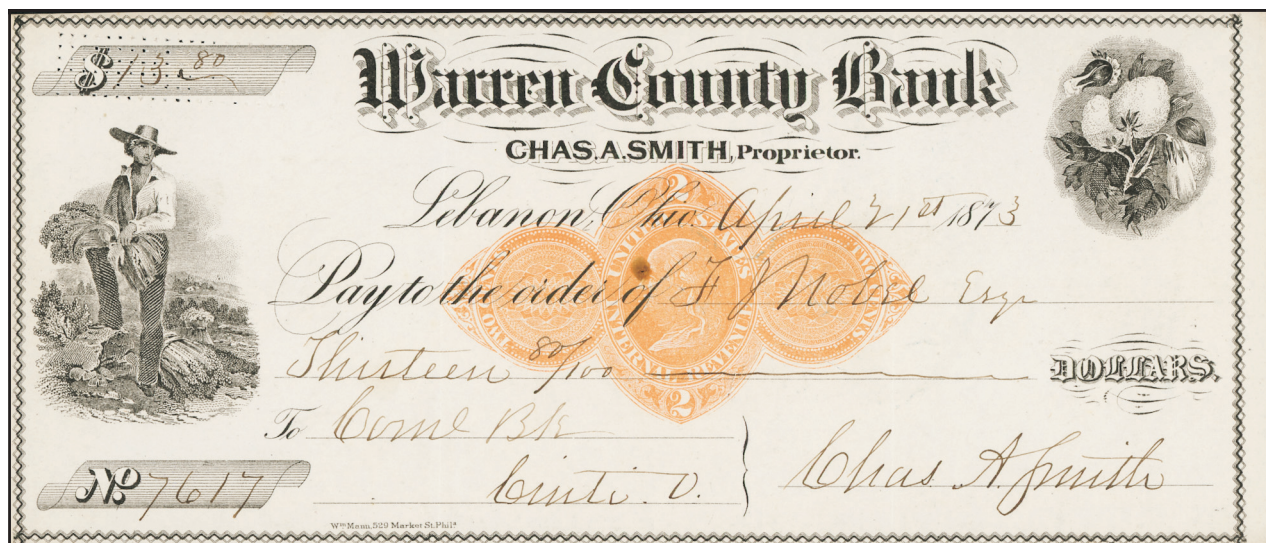 $13.80
Warren County Bank
CHAS. A. SMITH, Proprietor.
Lebanon, Ohio. April 21st 1873
Pay to the order of F J Nobel Esqr
Thirteen 80/100 DOLLARS.
To Coml Bk
Cinti. O.
Chas A. Smith
No 7617
Wm Mann, 529 Market St. Phila
2
UNITED STATES
INTERNAL REVENUE
2